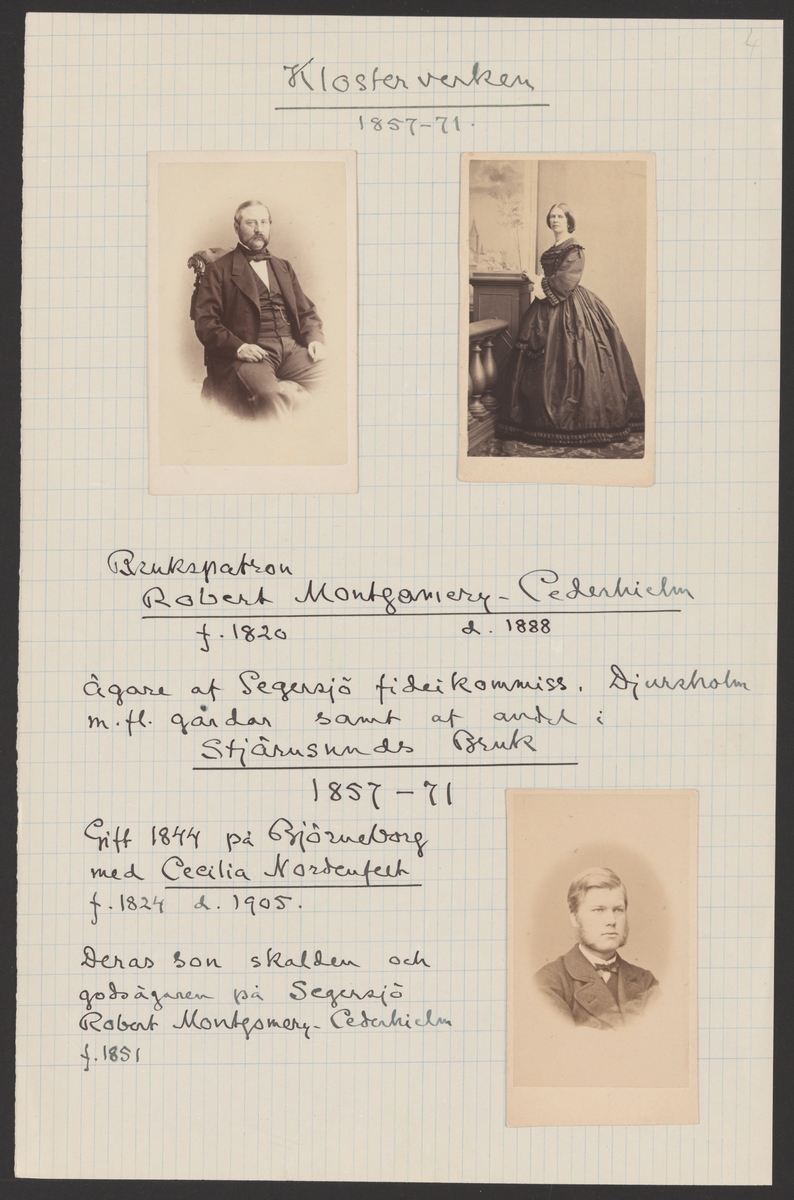 4
Klosterverken
1857-71.
Brukspatron
Robert Montgomery-Cederhielm
f. 1820 d. 1888
ägare af Segersjö fideikommiss, Djursholm
m.fl. gårdar samt af andel i
Stjärnsunds Bruk
1857-71
Gift 1844 på Björneborg
med Cecilia Nordenfelt
f. 1824 d. 1905.
Deras son skalden och
godsägaren på Segersjö
Robert Montgomery-Cederhielm
f. 1851